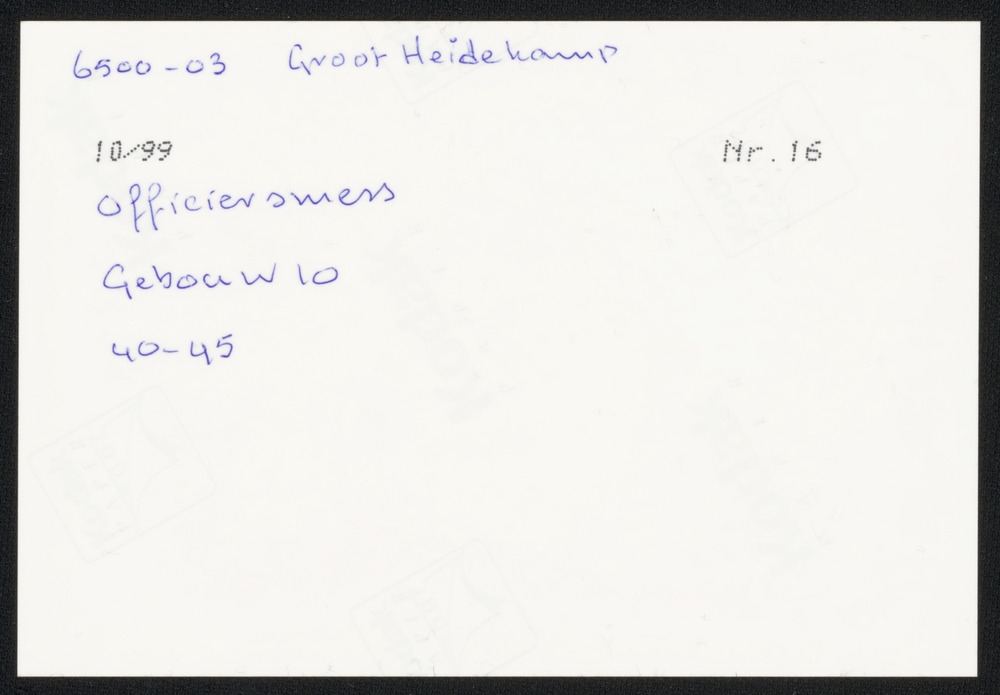 6500-03 Groot Heidekamp
10/99 Nr. 16
Officiersmess
Gebouw 10
40-45